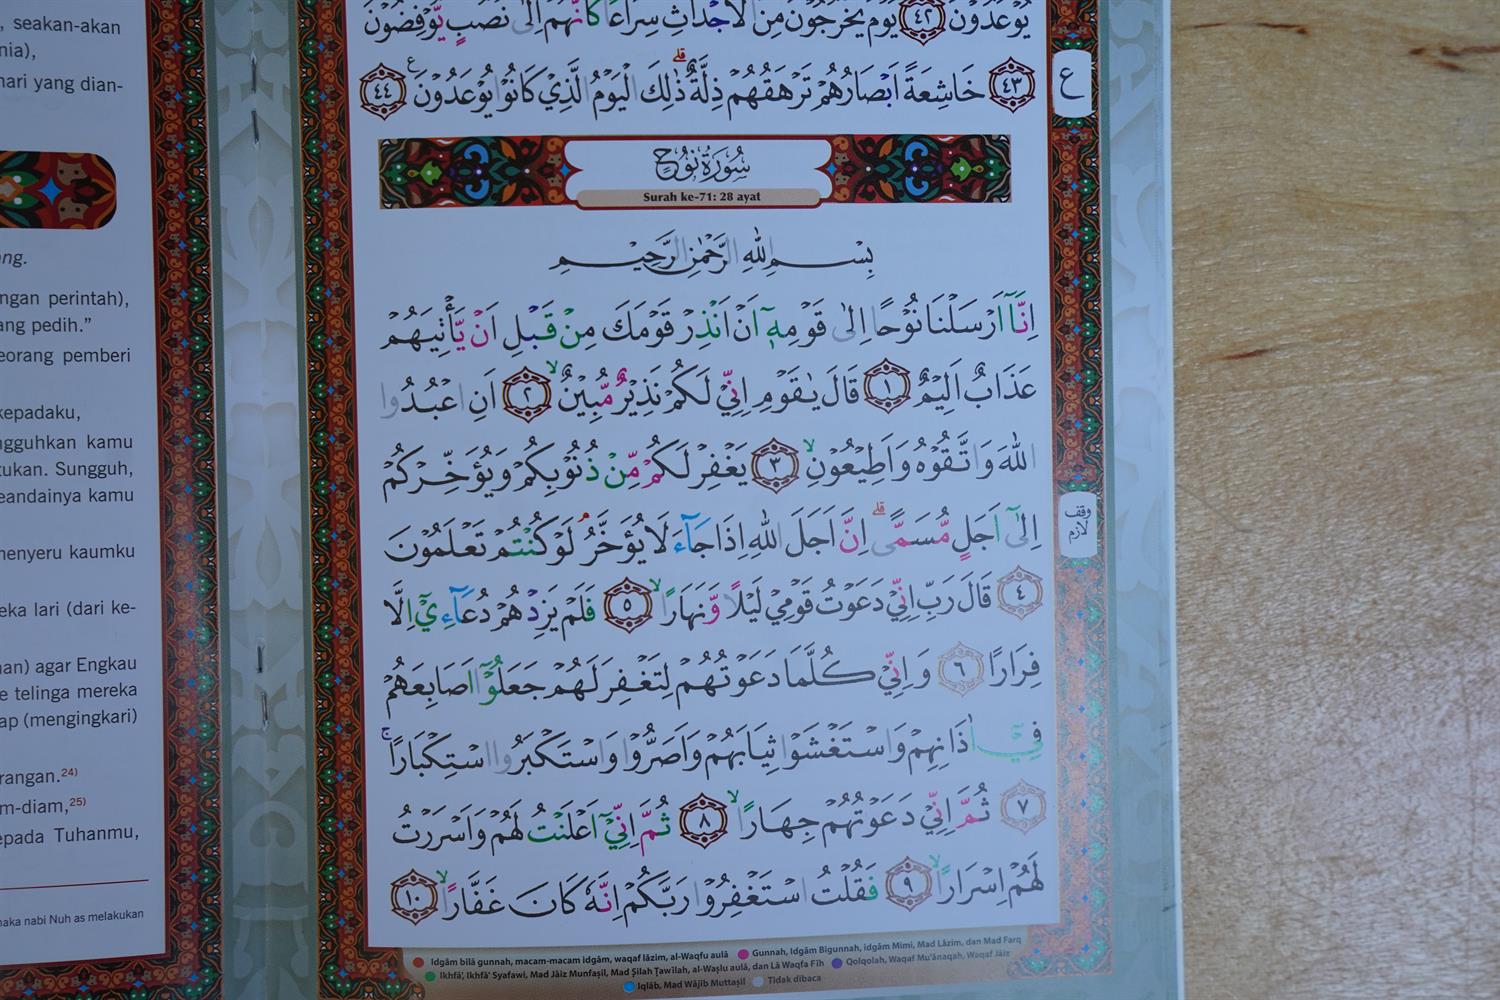 , seakan-akan
nia),
hari yang dian-
ang.
ngan perintah),
ang pedih.”
eorang pemberi
kepadaku,
ngguhkan kamu
tukan. Sungguh,
eandainya kamu
menyeru kaumku
eka lari (dari ke-
han) agar Engkau
e telinga mereka
ap (mengingkari)
rangan.24)
m-diam,25)
epada Tuhanmu,
naka nabi Nuh as melakukan
يُوْعَدُوْنَ ۝٤٢ يَوْمَ يَخْرُجُوْنَ مِنَ الْاَجْدَاثِ سِرَاعًا كَاَنَّهُمْ اِلٰى نُصُبٍ يُّوْفِضُوْنَ
۝٤٣ خَاشِعَةً اَبْصَارُهُمْ تَرْهَقُهُمْ ذِلَّةٌ ۗذٰلِكَ الْيَوْمُ الَّذِيْ كَانُوْا يُوْعَدُوْنَ ࣖ ۝٤٤
ع
سُوْرَةُ نُوْحٍ
Surah ke-71: 28 ayat
بِسْمِ اللّٰهِ الرَّحْمٰنِ الرَّحِيْمِ
اِنَّآ اَرْسَلْنَا نُوْحًا اِلٰى قَوْمِهٖٓ اَنْ اَنْذِرْ قَوْمَكَ مِنْ قَبْلِ اَنْ يَّأْتِيَهُمْ
عَذَابٌ اَلِيْمٌ ۝١ قَالَ يٰقَوْمِ اِنِّيْ لَكُمْ نَذِيْرٌ مُّبِيْنٌۙ ۝٢ اَنِ اعْبُدُوا
اللّٰهَ وَاتَّقُوْهُ وَاَطِيْعُوْنِۙ ۝٣ يَغْفِرْ لَكُمْ مِّنْ ذُنُوْبِكُمْ وَيُؤَخِّرْكُمْ
اِلٰٓى اَجَلٍ مُّسَمًّىۗ اِنَّ اَجَلَ اللّٰهِ اِذَا جَاۤءَ لَا يُؤَخَّرُۘ لَوْ كُنْتُمْ تَعْلَمُوْنَ
وقف لازم
۝٤ قَالَ رَبِّ اِنِّيْ دَعَوْتُ قَوْمِيْ لَيْلًا وَّنَهَارًاۙ ۝٥ فَلَمْ يَزِدْهُمْ دُعَاۤءِيْٓ اِلَّا
فِرَارًا ۝٦ وَاِنِّيْ كُلَّمَا دَعَوْتُهُمْ لِتَغْفِرَ لَهُمْ جَعَلُوْٓا اَصَابِعَهُمْ
فِيْٓ اٰذَانِهِمْ وَاسْتَغْشَوْا ثِيَابَهُمْ وَاَصَرُّوْا وَاسْتَكْبَرُوا اسْتِكْبَارًاۚ
۝٧ ثُمَّ اِنِّيْ دَعَوْتُهُمْ جِهَارًاۙ ۝٨ ثُمَّ اِنِّيْٓ اَعْلَنْتُ لَهُمْ وَاَسْرَرْتُ
لَهُمْ اِسْرَارًاۙ ۝٩ فَقُلْتُ اسْتَغْفِرُوْا رَبَّكُمْ اِنَّهٗ كَانَ غَفَّارًاۙ ۝١٠
Idgām bilā gunnah, macam-macam idgām, waqaf lāzim, al-Waqfu aulā Gunnah, Idgām Bigunnah, idgām Mimi, Mad Lāzim, dan Mad Farq
Ikhfā', Ikhfā' Syafawi, Mad Jāiz Munfaṣil, Mad Ṣilah Ṭawīlah, al-Waṣlu aulā, dan Lā Waqfa Fīh Qolqolah, Waqaf Mu'ānaqah, Waqaf Jāiz
Iqlāb, Mad Wājib Muttaṣil Tidak dibaca